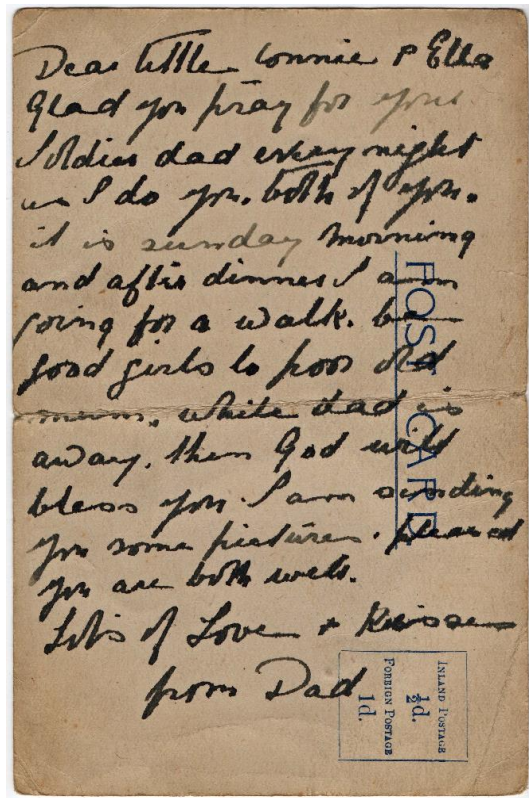 Dear little Connie & Ella
Glad you pray for your
Soldier dad every night
as I do you. both of you.
it is sunday morning
and after dinner I am
going for a walk. be
good girls to poor old
mum. while dad is
away. then God will
bless you. I am sending
you some pictures. pleased
you are both well.
Lots of Love + Kisses
from Dad
POST CARD
INLAND POSTAGE
½d.
FOREIGN POSTAGE
1d.